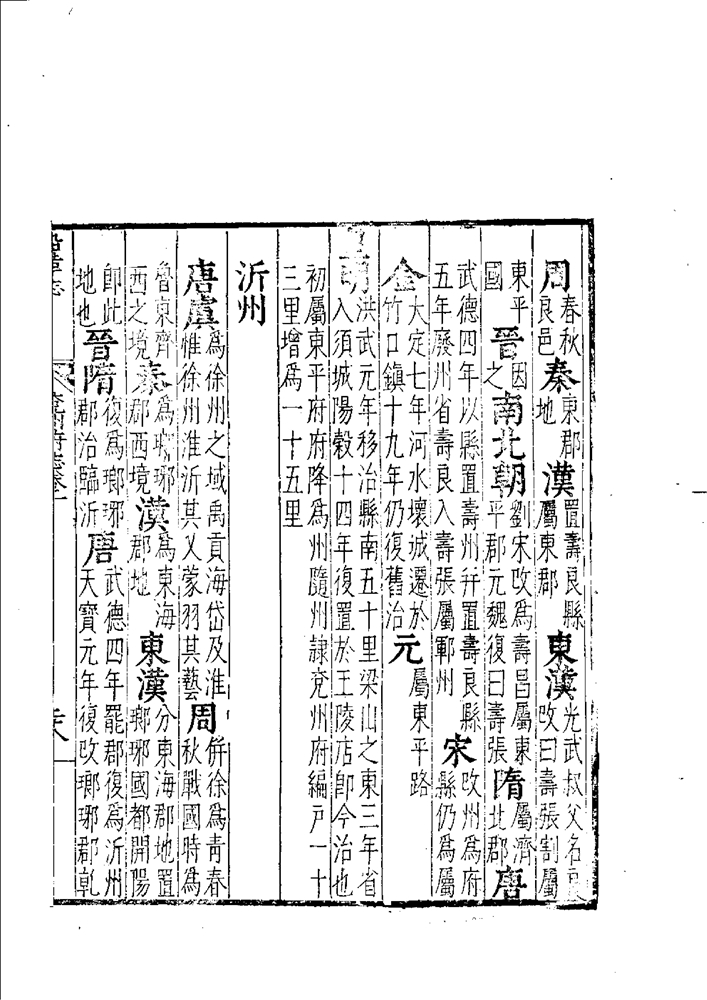 周春秋良邑秦東郡地漢置壽良縣屬東郡東漢光武叔父名良改曰壽張割屬
東平國晉因之南北朝劉宋改爲壽昌屬東平郡元魏復曰壽張隋屬濟北郡唐
武德四年以縣置壽州幷置壽良縣五年廢州省壽良入壽張屬鄆州宋改州爲府縣仍爲屬
金大定七年河水壞城遷於竹口鎮十九年仍復舊治元屬東平路
明洪武元年移治縣南五十里梁山之東三年省入須城陽穀十四年復置於王陵店卽今治也
初屬東平府府降爲州隨州隸兗州府編戶一十三里增爲一十五里
沂州
唐虞爲徐州之域禹貢海岱及淮惟徐州淮沂其乂蒙羽其藝周併徐爲青春秋戰國時爲
魯東齊西之境秦爲瑯琊郡西境漢爲東海郡地東漢分東海郡地置瑯琊國都開陽
卽此地也晉隋復爲瑯琊郡治臨沂唐武德四年罷郡復爲沂州天寶元年復改瑯琊郡乾